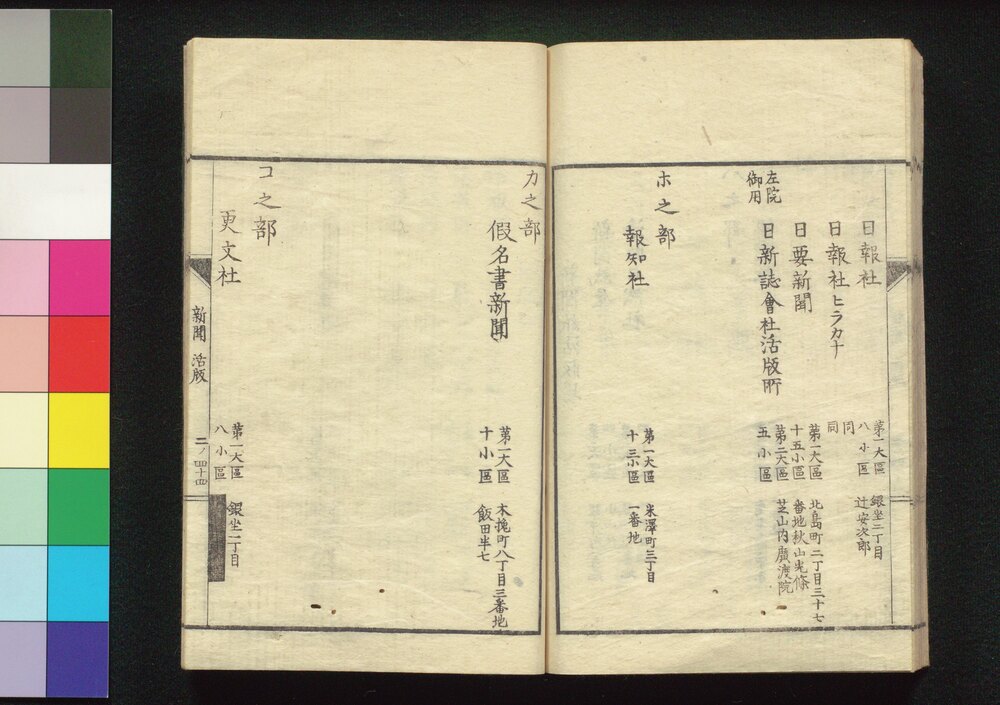 日報社
第一大區
八小區
銀坐二丁目
辻安次郎
日報社ヒラカナ
同
同
日要新聞
第一大區
十五小區
北島町二丁目三十七
番地秋山光條
左院
御用
日新誌會社活版所
第二大區
五小區
芝山内廣渡院
ホ之部
報知社
第一大區
十三小區
米澤町三丁目
一番地
カ之部
假名書新聞
第一大區
十小區
木挽町八丁目三番地
飯田半七
コ之部
更文社
第一大區
八小區
銀坐二丁目
新聞 活版
二ノ四十四